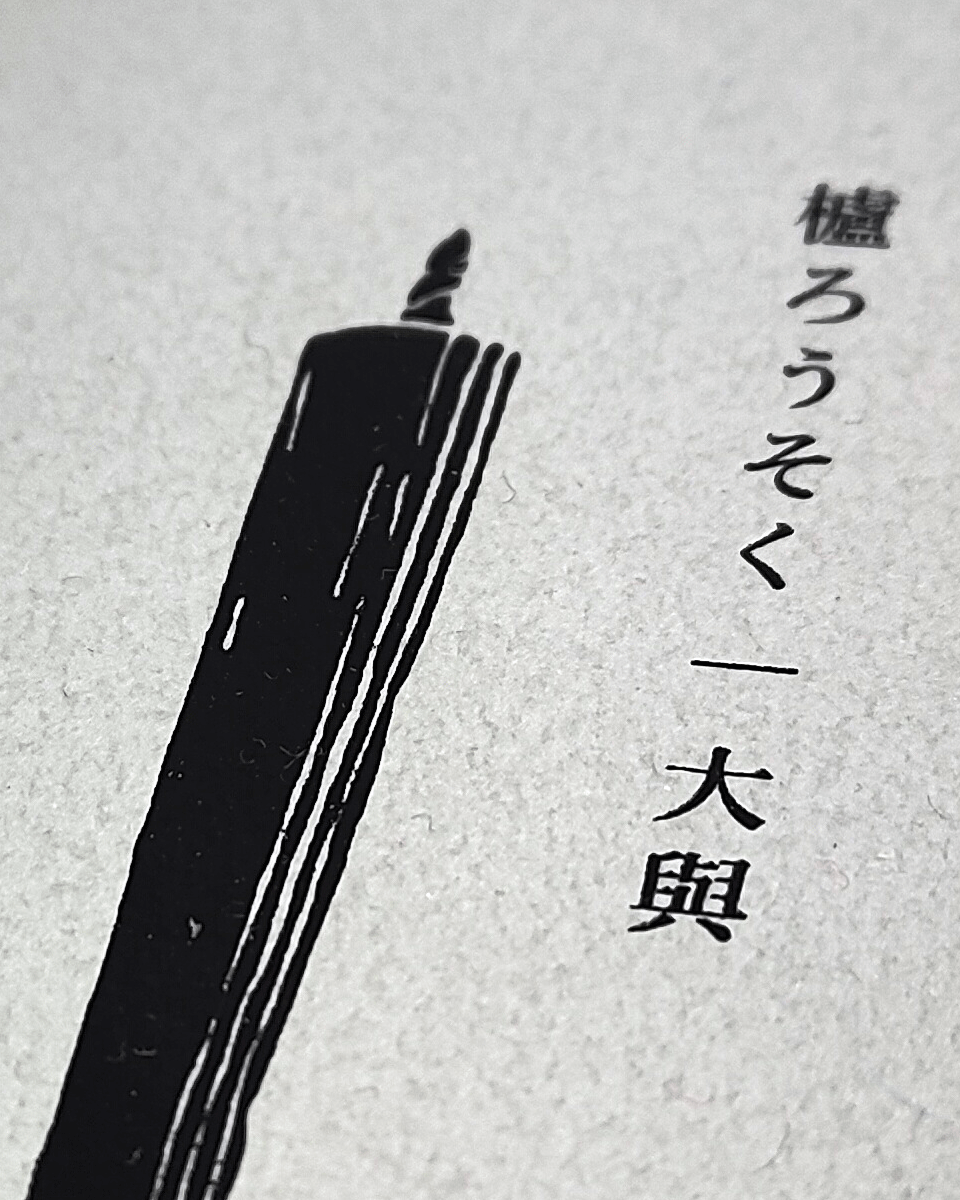 櫨ろうそく｜大與